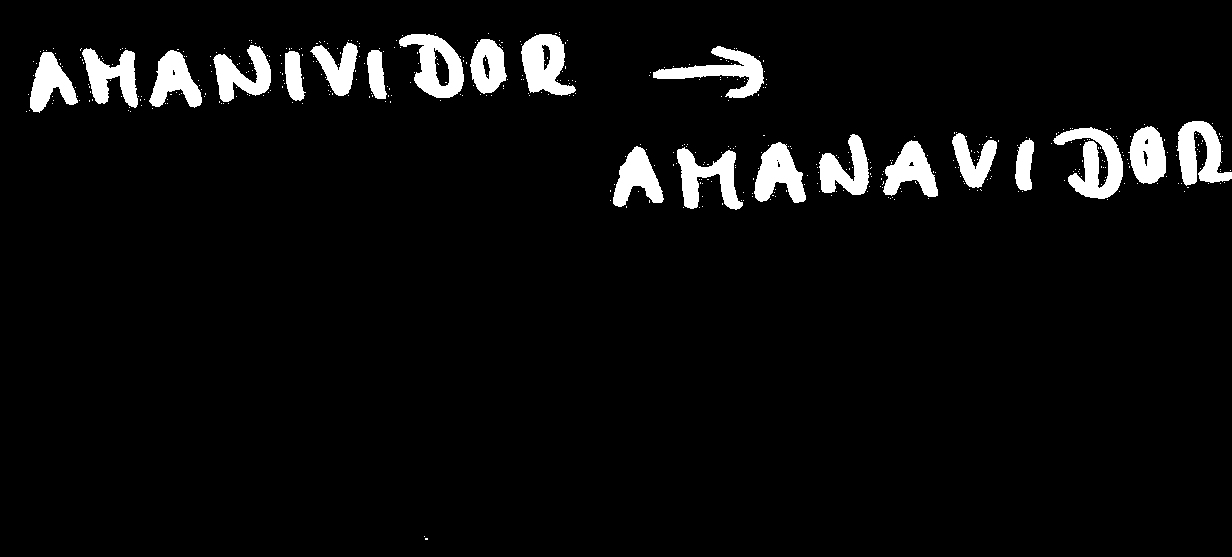 AMANIVIDOR →
AMANAVIDOR